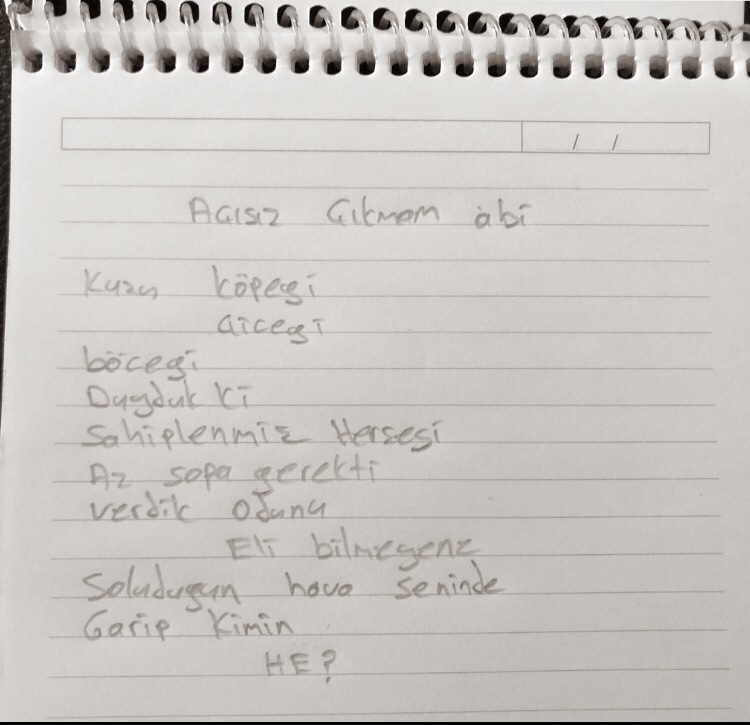 / /
Acısız Çıkmam abi
Kuzu köpegi
çiçegi
böcegi
Duyduk ki
Sahiplenmiş Herşeyi
Az sopa gerekti
verdik odunu
Eli bilmeyene
Soludugun hava seninde
Garip Kimin
HE?